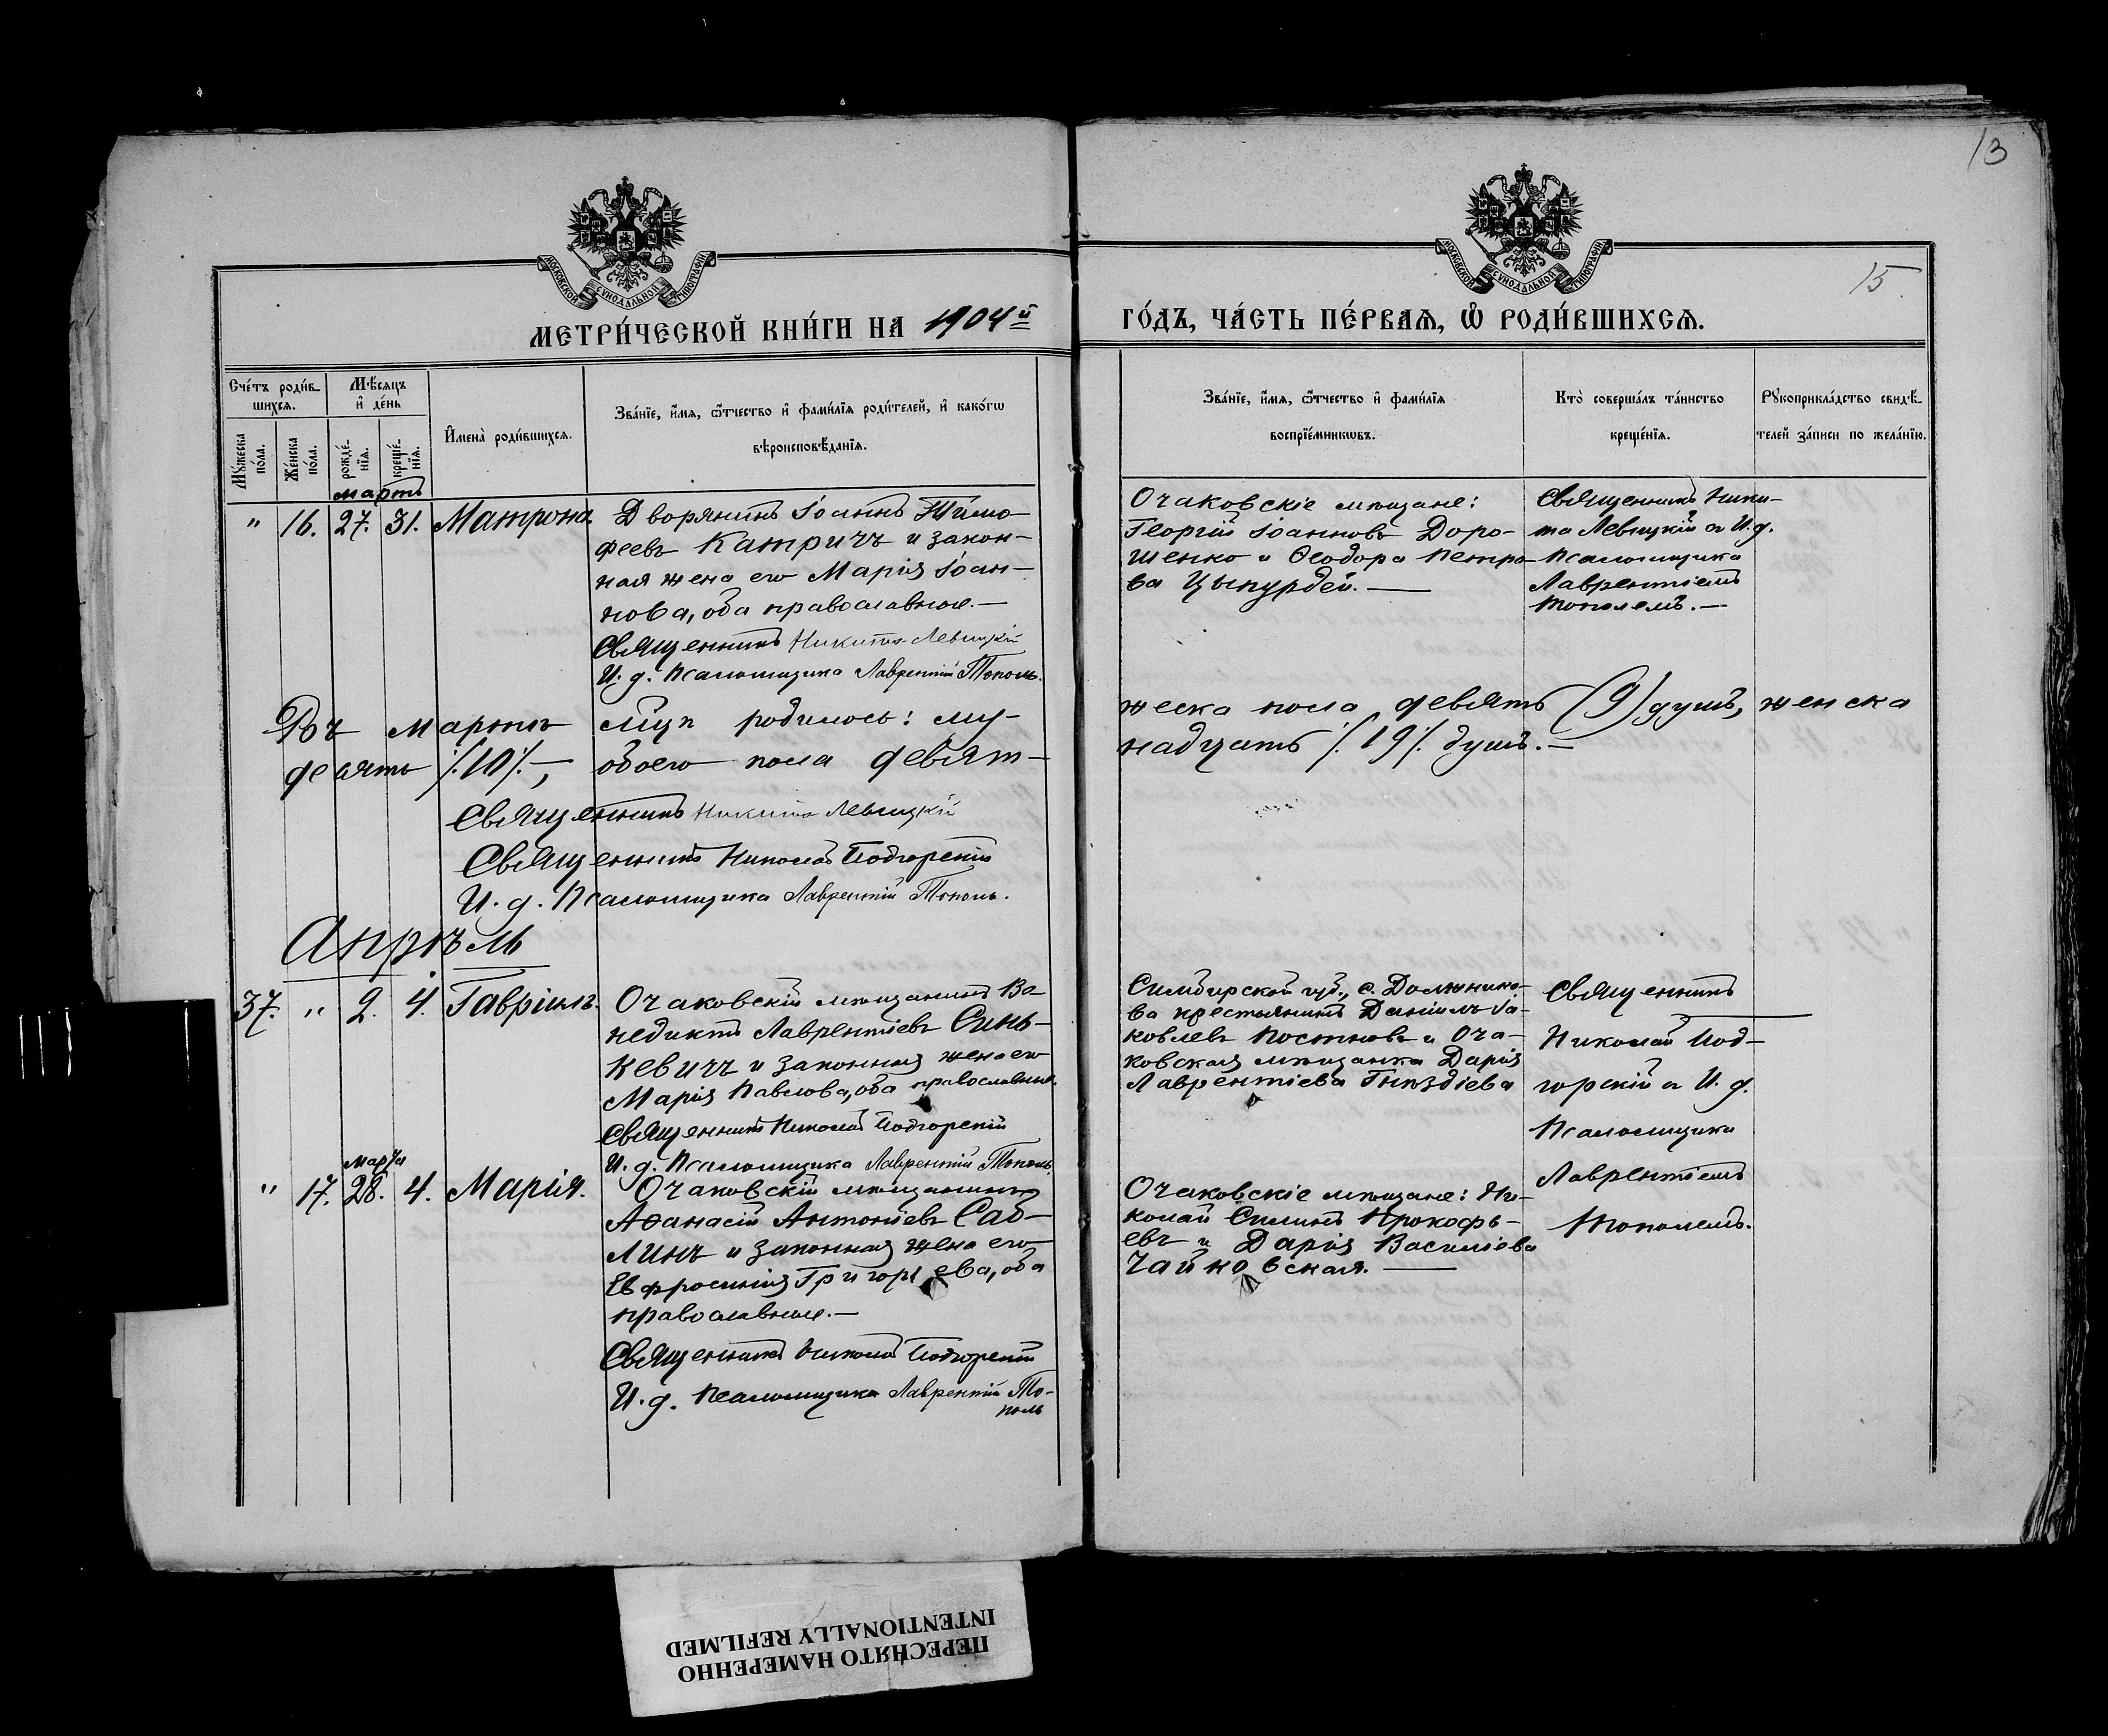 13
15
МОСКОВСКОЙ СѴНОДАЛЬНОЙ ТИПОГРАФІИ
МОСКОВСКОЙ СѴНОДАЛЬНОЙ ТИПОГРАФІИ
МЕТРИ́ЧЕСКОЙ КНИ́ГИ НА 1904й
ГО́ДЪ, ЧА́СТЬ ПЕ́РВАѦ, Ѽ РОДИ́ВШИХСѦ.
Сче́тъ роди́в-
шихсѧ.
Мꙋ́жеска
по́ла.
Же́нска
по́ла.
Мѣ́сѧцъ
и҆ де́нь
рожде́-
нїѧ.
креще́-
нїѧ.
И҆мена̀ роди́вшихсѧ.
Зва́нїе, и҆́мѧ, ѻ҆́тчество и҆ фамѝлїѧ роди́телей, и҆ како́гѡ
вѣроисповѣ́данїѧ.
Зва́нїе, и҆́мѧ, ѻ҆́тчество и҆ фамѝлїѧ
воспрїе́мникѡвъ.
Кто̀ соверша́лъ та́инство
креще́нїѧ.
Рꙋкоприкла́дство свидѣ́-
телей за́писи по жела́нїю.
мартъ
" 16. 27. 31. Матрона.
Дворянинъ Іоаннъ Тимо-
феевъ Катричъ и закон-
ная жена его Марія Іоан-
нова, оба православные.—
Священникъ Никита Левицкій
И. д. Псаломщика Лаврентій Тополь.
Очаковскіе мѣщане:
Георгій Іоанновъ Доро-
шенко и Ѳеодора Петро-
ва Цыпурдей.—
Священникъ Ники-
та Левицкій и И. д.
Псаломщика
Лаврентіемъ
Тополемъ.—
Въ мартѣ м-цѣ родилось: му-
жеска пола девять (9) душъ, женска
десять /.10/.—, обоего пола девят-
надцать /.19/. душъ.—
Священникъ Никита Левицкій
Священникъ Николай Подгорскій
И. д. Псаломщика Лаврентій Тополь.
Апрѣль
37. " 2. 4. Гавріилъ.
Очаковскій мѣщанинъ Ве-
недиктъ Лаврентіевъ Синь-
кевичъ и законная жена его
Марія Павлова, оба православные.
Священникъ Николай Подгорскій
И. д. Псаломщика Лаврентій Тополь.
Симбирской губ., с. Должнико-
ва крестьянинъ Даніилъ Іа-
ковлевъ Постновъ и Оча-
ковская мѣщанка Дарія
Лаврентіева Гнѣздіева
Священникъ
Николай Под-
горскій и И. д.
Псаломщика
Лаврентіемъ
Тополемъ.
Марта
" 17. 28. 4. Марія.
Очаковскій мѣщанинъ
Аѳанасій Антоніевъ Саб-
линъ и законная жена его
Евфросинія Григорьева, оба
православные.—
Священникъ Николай Подгорскій
И. д. Псаломщика Лаврентій То-
поль
Очаковскіе мѣщане: Ни-
колай Силинъ Прокофь-
евъ и Дарія Василіева
Чайковская.—
ПЕРЕСНЯТО НАМЕРЕННО
INTENTIONALLY REFILMED